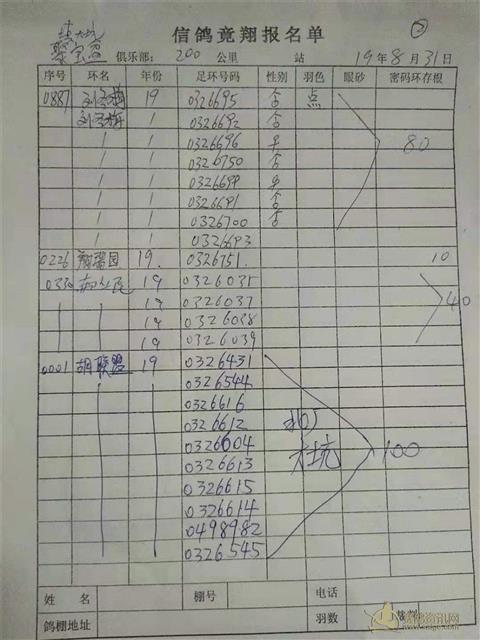 信鸽竞翔报名单 ②
聚宝盆 俱乐部: 200 公里 站 19年8月31日
序号 环名 年份 足环号码 性别 羽色 眼砂 密码环存根
0887 19 0326695 点
1 0326692
1 0326696 80
1 0326750
1 0326699
1 0326691
1 0326700
1 0326693
0226 翔磬园 19. 0326751. 10
0330 19 0326035
19 0326037 40
19 0326038
19 0326039
0001 胡联盟 19 0326431
0326544
0326616
0326612
0326604
0326613 100
0326615
0326614
0498982
0326545
姓名 棚号 电话
鸽棚地址 羽数 裁判